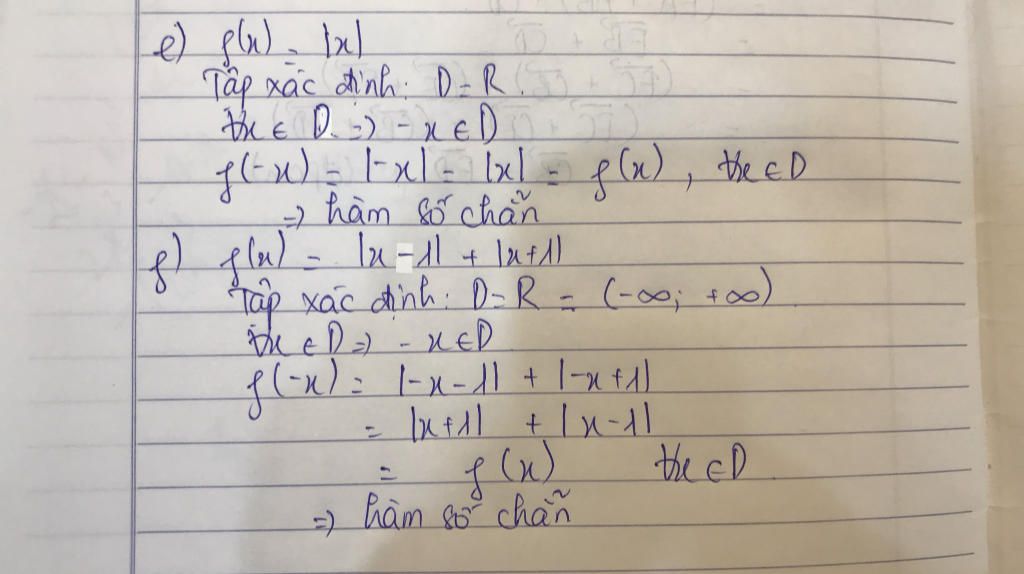 e) f(x) = |x|
Tập xác định: D = R.
∀x ∈ D. => -x ∈ D
f(-x) = |-x| = |x| = f(x), ∀x ∈ D
=> hàm số chẵn
f) f(x) = |x-1| + |x+1|
Tập xác định: D = R = (-∞; +∞)
∀x ∈ D => -x ∈ D
f(-x) = |-x-1| + |-x+1|
= |x+1| + |x-1|
= f(x) ∀x ∈ D
=> hàm số chẵn